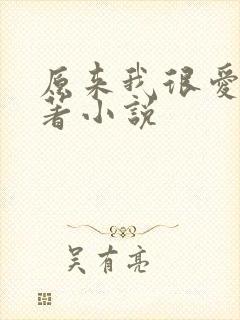 原来我很爱
著小说
吴有亮